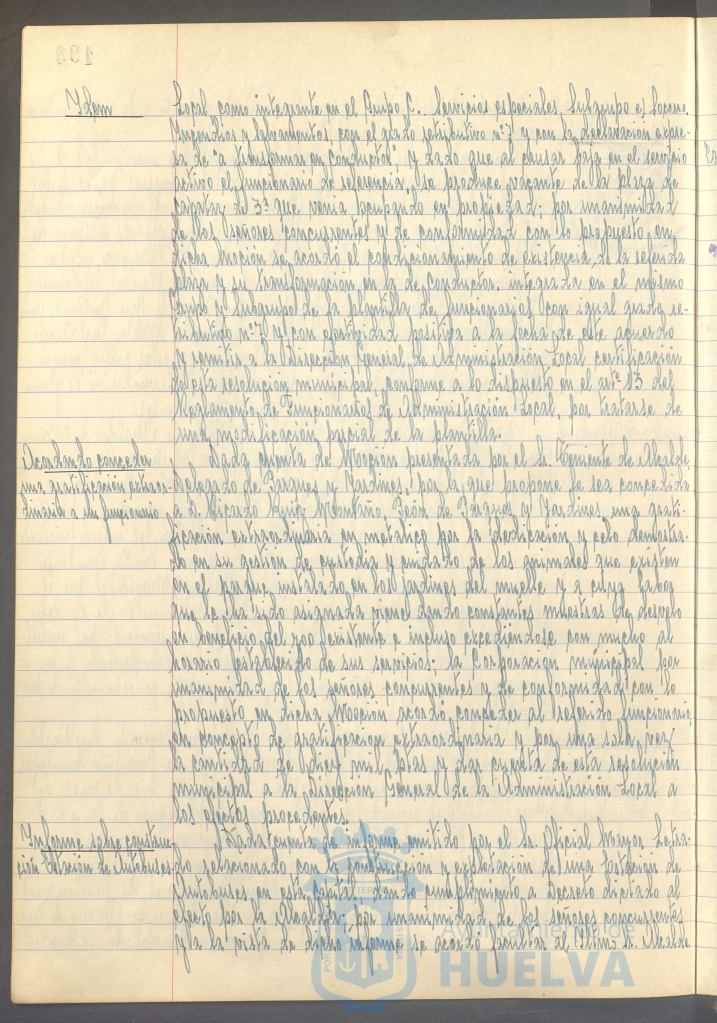 Idem
Local como integrante en el Grupo C. Servicios especiales Subgrupo e) Socorro,
Incendios y Salvamentos, con el grado retributivo nº 7 y con la declaración expre-
sa de "a transformar en Conductor", y dado que al causar baja en el servicio
activo el funcionario de referencia, se produce vacante de la plaza de
Capataz de 3ª que venia ocupando en propiedad; por unanimidad
de los señores concurrentes y de conformidad con lo propuesto en
dicha moción se acordó el condicionamiento de existencia de la referida
plaza y su transformación en la de Conductor, integrada en el mismo
Grupo y Subgrupo de la plantilla de funcionarios con igual grado re-
tributivo nº 7 y con efectividad positiva a la fecha de este acuerdo
y remitir a la Dirección General de Administración Local certificación
de esta resolución municipal, conforme a lo dispuesto en el artº 13 del
Reglamento de Funcionarios de Administración Local, por tratarse de
una modificación parcial de la plantilla.
Acordando conceder
una gratificación extraor-
dinaria a un funcionario
Dada cuenta de Moción presentada por el Sr. Teniente de Alcalde
Delegado de Parques y Jardines, por la que propone le sea concedida
a D. Ricardo Ruiz Montaño, Peón de Parques y Jardines, una grati-
ficación extraordinaria en metálico por la dedicación y celo demostra-
do en su gestión de custodia y cuidado de los animales que existen
en el parque instalado en los Jardines del Muelle y a cuya labor
que le ha sido asignada viene dando constantes muestras de desvelo
en beneficio del zoo existente e incluso excediéndose con mucho al
horario establecido de sus servicios; la Corporación municipal por
unanimidad de los señores concurrentes y de conformidad con lo
propuesto en dicha Moción acordó conceder al referido funcionario,
en concepto de gratificación extraordinaria y por una sola vez,
la cantidad de diez mil ptas y dar cuenta de esta resolución
municipal a la Dirección General de la Administración Local a
los efectos procedentes.
Informe sobre construc-
ción Estación de Autobuses
Dada cuenta de informe emitido por el Sr. Oficial Mayor Letra-
do relacionado con construcción y explotación de una Estación de
Autobuses en esta capital, dando cumplimiento a Decreto dictado al
efecto por la Alcaldía; por unanimidad de los señores concurrentes
y a la vista de dicho informe se acordó facultar al Iltmo Sr. Alcalde
Ayuntamiento de
HUELVA